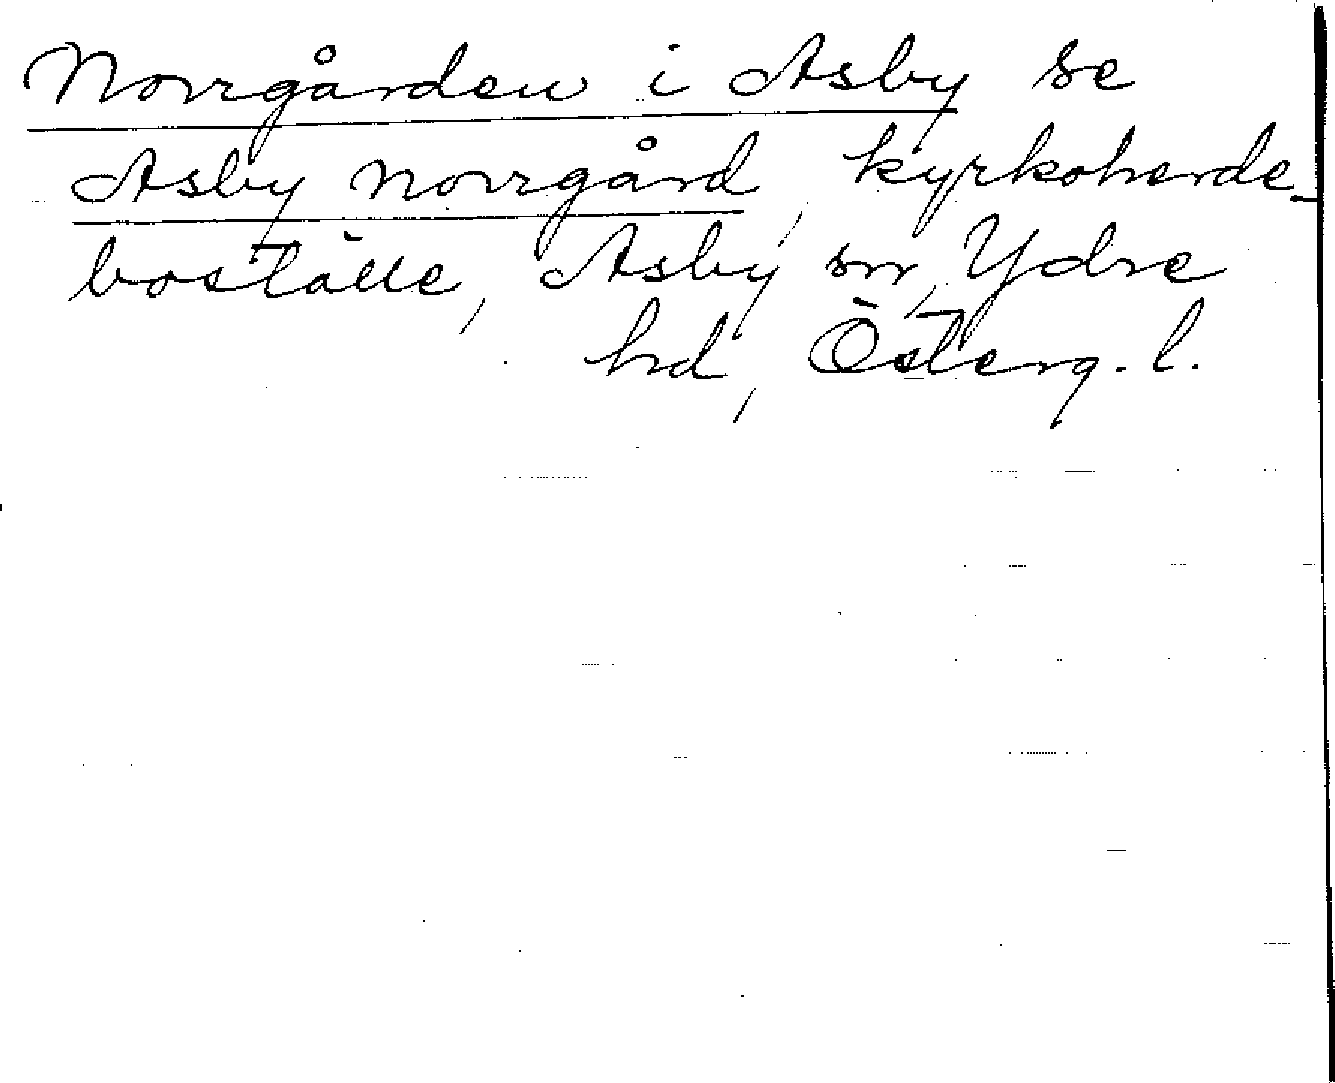 Norrgården i Asby se
Asby norrgård, kyrkoherde-
boställe, Asby sn, Ydre
hd, Österg. l.